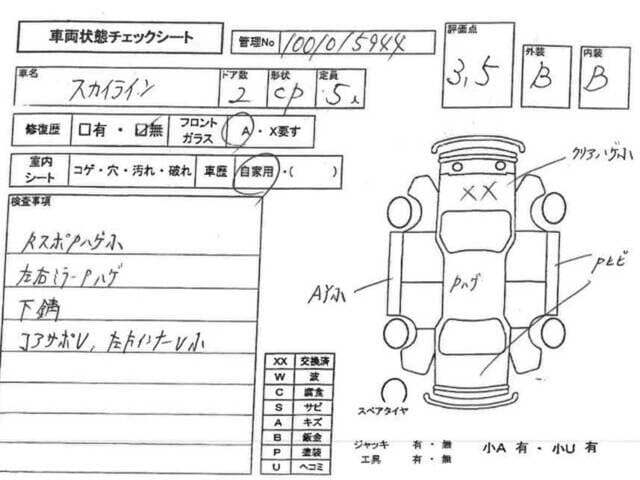 車両状態チェックシート
管理No 1001015944
評価点 3,5
外装 B
内装 B
車名 スカイライン
ドア数 2
形状 CP
定員 5人
修復歴 □有・☑無
フロントガラス A・X要す
室内シート コゲ・穴・汚れ・破れ
車歴 自家用・( )
検査事項
RスポPハゲ小
左右ミラーPハゲ
下錆
コアサポU, 左右インナーU小
クリアハゲ小
XX
Pハゲ
Pヒビ
AY小
XX 交換済
W 波
C 腐食
S サビ
A キズ
B 鈑金
P 塗装
U ヘコミ
スペアタイヤ
ジャッキ 有・無
工具 有・無
小A 有・小U 有